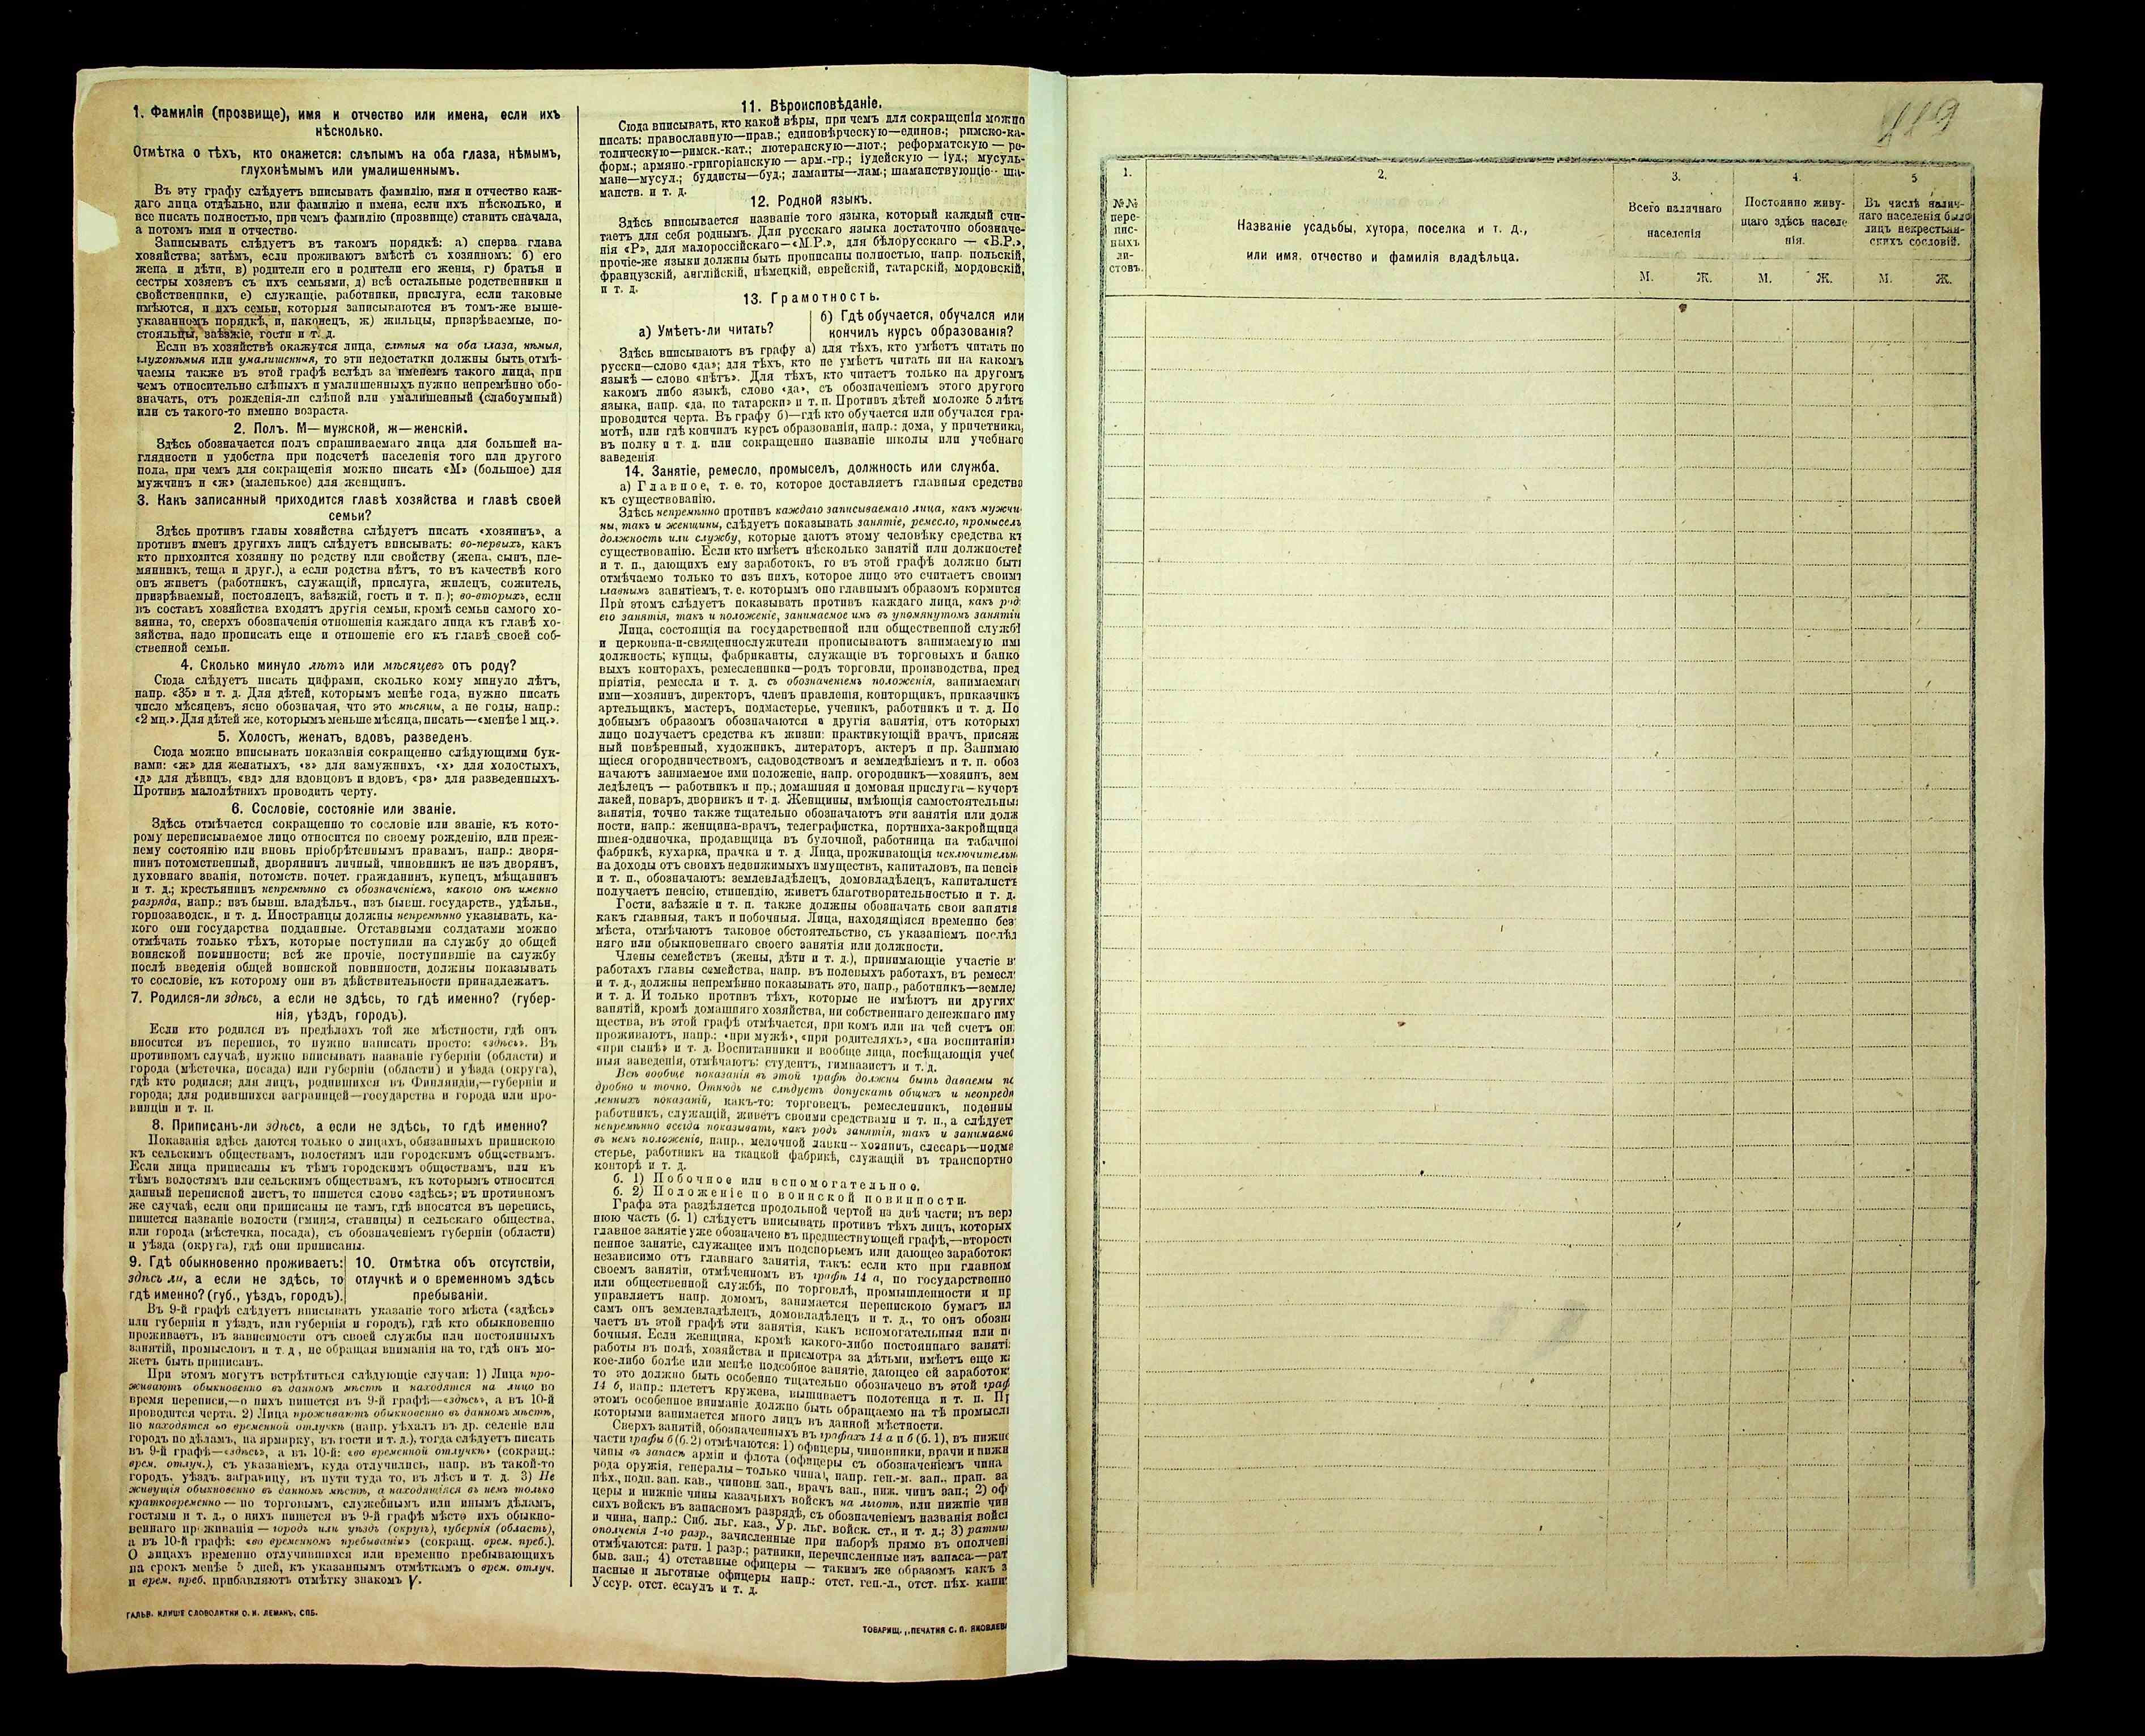 1. Фамилія (прозвище), имя и отчество или имена, если ихъ
нѣсколько.
Отмѣтка о тѣхъ, кто окажется: слѣпымъ на оба глаза, нѣмымъ,
глухонѣмымъ или умалишеннымъ.
Въ эту графу слѣдуетъ вписывать фамилію, имя и отчество каж-
даго лица отдѣльно, или фамилію и имена, если ихъ нѣсколько, и
все писать полностью, при чемъ фамилію (прозвище) ставить сначала,
а потомъ имя и отчество.
Записывать слѣдуетъ въ такомъ порядкѣ: а) сперва глава
хозяйства; затѣмъ, если проживаютъ вмѣстѣ съ хозяиномъ: б) его
жена и дѣти, в) родители его и родители его жены, г) братья и
сестры хозяевъ съ ихъ семьями, д) всѣ остальные родственники и
свойственники, е) служащіе, работники, прислуга, если таковые
имѣются, и ихъ семьи, которыя записываются въ томъ-же выше-
указанномъ порядкѣ, и, наконецъ, ж) жильцы, призрѣваемые, по-
стояльцы, заѣзжіе, гости и т. д.
Если въ хозяйствѣ окажутся лица, слѣпыя на оба глаза, нѣмыя,
глухонѣмыя или умалишенныя, то эти недостатки должны быть отмѣ-
чаемы также въ этой графѣ вслѣдъ за именемъ такого лица, при
чемъ относительно слѣпыхъ и умалишенныхъ нужно непремѣнно обо-
значать, отъ рожденія-ли слѣпой или умалишенный (слабоумный)
или съ такого-то именно возраста.
2. Полъ. М—мужской, ж—женскій.
Здѣсь обозначается полъ спрашиваемаго лица для большей на-
глядности и удобства при подсчетѣ населенія того или другого
пола, при чемъ для сокращенія можно писать «М» (большое) для
мужчинъ и «ж» (маленькое) для женщинъ.
3. Какъ записанный приходится главѣ хозяйства и главѣ своей
семьи?
Здѣсь противъ главы хозяйства слѣдуетъ писать «хозяинъ», а
противъ именъ другихъ лицъ слѣдуетъ вписывать: во-первыхъ, какъ
кто приходится хозяину по родству или свойству (жена, сынъ, пле-
мянникъ, теща и друг.), а если родства нѣтъ, то въ качествѣ кого
онъ живетъ (работникъ, служащій, прислуга, жилецъ, сожитель,
призрѣваемый, постоялецъ, заѣзжій, гость и т. п.); во-вторыхъ, если
въ составъ хозяйства входятъ другія семьи, кромѣ семьи самого хо-
зяина, то, сверхъ обозначенія отношенія каждаго лица къ главѣ хо-
зяйства, надо прописать еще и отношеніе его къ главѣ своей соб-
ственной семьи.
4. Сколько минуло лѣтъ или мѣсяцевъ отъ роду?
Сюда слѣдуетъ писать цифрами, сколько кому минуло лѣтъ,
напр. «35» и т. д. Для дѣтей, которымъ менѣе года, нужно писать
число мѣсяцевъ, ясно обозначая, что это мѣсяцы, а не годы, напр.:
«2 мц.». Для дѣтей же, которымъ меньше мѣсяца, писать—«менѣе 1 мц.».
5. Холостъ, женатъ, вдовъ, разведенъ.
Сюда можно вписывать показанія сокращенно слѣдующими бук-
вами: «ж» для женатыхъ, «з» для замужнихъ, «х» для холостыхъ,
«д» для дѣвицъ, «вд» для вдовцовъ и вдовъ, «рз» для разведенныхъ.
Противъ малолѣтнихъ проводить черту.
6. Сословіе, состояніе или званіе.
Здѣсь отмѣчается сокращенно то сословіе или званіе, къ кото-
рому переписываемое лицо относится по своему рожденію, или преж-
нему состоянію или вновь пріобрѣтеннымъ правамъ, напр.: дворя-
нинъ потомственный, дворянинъ личный, чиновникъ не изъ дворянъ,
духовнаго званія, потомств. почет. гражданинъ, купецъ, мѣщанинъ
и т. д.; крестьянинъ непремѣнно съ обозначеніемъ, какого онъ именно
разряда, напр.: изъ бывш. владѣльч., изъ бывш. государств., удѣльн.,
горнозаводск., и т. д. Иностранцы должны непремѣнно указывать, ка-
кого они государства подданные. Отставными солдатами можно
отмѣчать только тѣхъ, которые поступили на службу до общей
воинской повинности; всѣ же прочіе, поступившіе на службу
послѣ введенія общей воинской повинности, должны показывать
то сословіе, къ которому они въ дѣйствительности принадлежатъ.
7. Родился-ли здѣсь, а если не здѣсь, то гдѣ именно? (губер-
нія, уѣздъ, городъ).
Если кто родился въ предѣлахъ той же мѣстности, гдѣ онъ
вносится въ перепись, то нужно написать просто: «здѣсь». Въ
противномъ случаѣ, нужно вписывать названіе губерніи (области) и
города (мѣстечка, посада) или губерніи (области) и уѣзда (округа),
гдѣ кто родился; для лицъ, родившихся въ Финляндіи,—губерніи и
города; для родившихся заграницей—государства и города или про-
винціи и т. п.
8. Приписанъ-ли здѣсь, а если не здѣсь, то гдѣ именно?
Показанія здѣсь даются только о лицахъ, обязанныхъ припискою
къ сельскимъ обществамъ, волостямъ или городскимъ обществамъ.
Если лица приписаны къ тѣмъ городскимъ обществамъ, или къ
тѣмъ волостямъ или сельскимъ обществамъ, къ которымъ относится
данный переписной листъ, то пишется слово «здѣсь»; въ противномъ
же случаѣ, если они приписаны не тамъ, гдѣ вносятся въ перепись,
пишется названіе волости (гмины, станицы) и сельскаго общества,
или города (мѣстечка, посада), съ обозначеніемъ губерніи (области)
и уѣзда (округа), гдѣ они приписаны.
9. Гдѣ обыкновенно проживаетъ:
здѣсь ли, а если не здѣсь, то
гдѣ именно? (губ., уѣздъ, городъ).
10. Отмѣтка объ отсутствіи,
отлучкѣ и о временномъ здѣсь
пребываніи.
Въ 9-й графѣ слѣдуетъ вписывать указаніе того мѣста («здѣсь»
или губернія и уѣздъ, или губернія и городъ), гдѣ кто обыкновенно
проживаетъ, въ зависимости отъ своей службы или постоянныхъ
занятій, промысловъ и т. д., не обращая вниманія на то, гдѣ онъ мо-
жетъ быть приписанъ.
При этомъ могутъ встрѣтиться слѣдующіе случаи: 1) Лица про-
живаютъ обыкновенно въ данномъ мѣстѣ и находятся на лицо во
время переписи,—о нихъ пишется въ 9-й графѣ—«здѣсь», а въ 10-й
проводится черта. 2) Лица проживаютъ обыкновенно въ данномъ мѣстѣ,
но находятся во временной отлучкѣ (напр. уѣхалъ въ др. селеніе или
городъ по дѣламъ, на ярмарку, въ гости и т. д.), тогда слѣдуетъ писать
въ 9-й графѣ—«здѣсь», а въ 10-й: «во временной отлучкѣ» (сокращ.:
врем. отлуч.), съ указаніемъ, куда отлучились, напр. въ такой-то
городъ, уѣздъ, заграницу, въ пути туда то, въ лѣсъ и т. д. 3) Не
живущія обыкновенно въ данномъ мѣстѣ, а находящіяся въ немъ только
кратковременно — по торговымъ, служебнымъ или инымъ дѣламъ,
гостями и т. д., о нихъ пишется въ 9-й графѣ мѣсто ихъ обыкно-
веннаго проживанія — городъ или уѣздъ (округъ), губернія (область),
а въ 10-й графѣ: «во временномъ пребываніи» (сокращ. врем. преб.).
О лицахъ временно отлучившихся или временно пребывающихъ
на срокъ менѣе 5 дней, къ указаннымъ отмѣткамъ о врем. отлуч.
и врем. преб. прибавляютъ отмѣтку знакомъ V.
ГАЛЬВ. КЛИШЕ СЛОВОЛИТНИ О. И. ЛЕМАНЪ, СПБ.
11. Вѣроисповѣданіе.
Сюда вписывать, кто какой вѣры, при чемъ для сокращенія можно
писать: православную—прав.; единовѣрческую—единов.; римско-ка-
толическую—римск.-кат.; лютеранскую—лют.; реформатскую — ре-
форм.; армяно-григоріанскую — арм.-гр.; іудейскую — іуд.; мусуль-
мане—мусул.; буддисты—буд.; ламаиты—лам.; шаманствующіе— ша-
манств. и т. д.
12. Родной языкъ.
Здѣсь вписывается названіе того языка, который каждый счи-
таетъ для себя роднымъ. Для русскаго языка достаточно обозначе-
нія «Р», для малороссійскаго—«М.Р.», для бѣлорусскаго — «Б.Р.»,
прочіе-же языки должны быть прописаны полностью, напр. польскій,
французскій, англійскій, нѣмецкій, еврейскій, татарскій, мордовскій,
и т. д.
13. Грамотность.
а) Умѣетъ-ли читать?
б) Гдѣ обучается, обучался или
кончилъ курсъ образованія?
Здѣсь вписываютъ въ графу а) для тѣхъ, кто умѣетъ читать по
русски—слово «да»; для тѣхъ, кто не умѣетъ читать ни на какомъ
языкѣ — слово «нѣтъ». Для тѣхъ, кто читаетъ только на другомъ
какомъ либо языкѣ, слово «да», съ обозначеніемъ этого другого
языка, напр. «да, по татарски» и т. п. Противъ дѣтей моложе 5 лѣтъ
проводится черта. Въ графу б)—гдѣ кто обучается или обучался гра-
мотѣ, или гдѣ кончилъ курсъ образованія, напр.: дома, у причетника,
въ полку и т. д. или сокращенно названіе школы или учебнаго
заведенія.
14. Занятіе, ремесло, промыселъ, должность или служба.
а) Главное, т. е. то, которое доставляетъ главныя средства
къ существованію.
Здѣсь непремѣнно противъ каждаго записываемаго лица, какъ мужчи
ны, такъ и женщины, слѣдуетъ показывать занятіе, ремесло, промыселъ
должность или службу, которые даютъ этому человѣку средства къ
существованію. Если кто имѣетъ нѣсколько занятій или должностей
и т. п., дающихъ ему заработокъ, то въ этой графѣ должно быть
отмѣчаемо только то изъ нихъ, которое лицо это считаетъ своимъ
главнымъ занятіемъ, т. е. которымъ оно главнымъ образомъ кормится
При этомъ слѣдуетъ показывать противъ каждаго лица, какъ родъ
его занятія, такъ и положеніе, занимаемое имъ въ упомянутомъ занятіи
Лица, состоящія на государственной или общественной службѣ
и церковно-и-священнослужители прописываютъ занимаемую ими
должность; купцы, фабриканты, служащіе въ торговыхъ и банко
выхъ конторахъ, ремесленники—родъ торговли, производства, пред
пріятія, ремесла и т. д. съ обозначеніемъ положенія, занимаемаго
ими—хозяинъ, директоръ, членъ правленія, конторщикъ, приказчикъ
артельщикъ, мастеръ, подмастерье, ученикъ, работникъ и т. д. По
добнымъ образомъ обозначаются и другія занятія, отъ которыхъ
лицо получаетъ средства къ жизни: практикующій врачъ, присяж
ный повѣренный, художникъ, литераторъ, актеръ и пр. Занимаю
щіеся огородничествомъ, садоводствомъ и земледѣліемъ и т. п. обоз
начаютъ занимаемое ими положеніе, напр. огородникъ—хозяинъ, зем
ледѣлецъ — работникъ и пр.; домашняя и домовая прислуга—кучеръ
лакей, поваръ, дворникъ и т. д. Женщины, имѣющія самостоятельныя
занятія, точно также тщательно обозначаютъ эти занятія или долж
ности, напр.: женщина-врачъ, телеграфистка, портниха-закройщица
швея-одиночка, продавщица въ булочной, работница на табачной
фабрикѣ, кухарка, прачка и т. д. Лица, проживающія исключительн
на доходы отъ своихъ недвижимыхъ имуществъ, капиталовъ, на пенсію
и т. п., обозначаютъ: землевладѣлецъ, домовладѣлецъ, капиталистъ
получаетъ пенсію, стипендію, живетъ благотворительностью и т. д.
Гости, заѣзжіе и т. п. также должны обозначать свои занятія
какъ главныя, такъ и побочныя. Лица, находящіяся временно без
мѣста, отмѣчаютъ таковое обстоятельство, съ указаніемъ послѣд
няго или обыкновеннаго своего занятія или должности.
Члены семействъ (жены, дѣти и т. д.), принимающіе участіе в
работахъ главы семейства, напр. въ полевыхъ работахъ, въ ремесл
и т. д., должны непремѣнно показывать это, напр., работникъ—землед
и т. д. И только противъ тѣхъ, которые не имѣютъ ни другихъ
занятій, кромѣ домашняго хозяйства, ни собственнаго денежнаго иму
щества, въ этой графѣ отмѣчается, при комъ или на чей счетъ он
проживаютъ, напр.: «при мужѣ», «при родителяхъ», «на воспитаніи»
«при сынѣ» и т. д. Воспитанники и вообще лица, посѣщающія учеб
ныя заведенія, отмѣчаютъ: студентъ, гимназистъ и т. д.
Всѣ вообще показанія въ этой графѣ должны быть даваемы по
дробно и точно. Отнюдь не слѣдуетъ допускать общихъ и неопредѣ
ленныхъ показаній, какъ-то: торговецъ, ремесленникъ, поденны
работникъ, служащій, живетъ своими средствами и т. п., а слѣдует
непремѣнно всегда показывать, какъ родъ занятія, такъ и занимаемо
въ немъ положеніе, напр., мелочной лавки—хозяинъ, слесарь—подма
стерье, работникъ на ткацкой фабрикѣ, служащій въ транспортно
конторѣ и т. д.
б. 1) Побочное или вспомогательное.
б. 2) Положеніе по воинской повинности.
Графа эта раздѣляется продольной чертой на двѣ части; въ верх
нюю часть (б. 1) слѣдуетъ вписывать противъ тѣхъ лицъ, которых
главное занятіе уже обозначено въ предшествующей графѣ,—второсте
пенное занятіе, служащее имъ подспорьемъ или дающее заработокъ
независимо отъ главнаго занятія, такъ: если кто при главном
своемъ занятіи, отмѣченномъ въ графѣ 14 а, по государственно
или общественной службѣ, по торговлѣ, промышленности и пр
управляетъ напр. домомъ, занимается перепискою бумагъ ил
самъ онъ землевладѣлецъ, домовладѣлецъ и т. д., то онъ обозна
чаетъ въ этой графѣ эти занятія, какъ вспомогательныя или п
бочныя. Если женщина, кромѣ какого-либо постояннаго заняті
работы въ полѣ, хозяйства и присмотра за дѣтьми, имѣетъ еще ка
кое-либо болѣе или менѣе подсобное занятіе, дающее ей заработок
то это должно быть особенно тщательно обозначено въ этой граф
14 б, напр.: плететъ кружева, вышиваетъ полотенца и т. п. Пр
этомъ особенное вниманіе должно быть обращаемо на тѣ промысл
которыми занимается много лицъ въ данной мѣстности.
Сверхъ занятій, обозначенныхъ въ графахъ 14 а и б (б. 1), въ нижне
части графы б (б. 2) отмѣчаются: 1) офицеры, чиновники, врачи и нижн
чины въ запасѣ арміи и флота (офицеры съ обозначеніемъ чина
рода оружія, генералы—только чина), напр. ген.-м. зап., прап. за
пѣх., подп. зап. кав., чиновн. зап., врачъ зап., ниж. чинъ зап.; 2) оф
церы и нижніе чины казачьихъ войскъ на льготѣ, или нижніе чин
сихъ войскъ въ запасномъ разрядѣ, съ обозначеніемъ названія войск
и чина, напр.: Сиб. льг. каз., Ур. льг. войск. ст., и т. д.; 3) ратник
ополченія 1-го разр., зачисленные при наборѣ прямо въ ополчені
отмѣчаются: ратн. 1 разр.; ратники, перечисленные изъ запаса.—рат
быв. зап.; 4) отставные офицеры — такимъ же образомъ какъ з
пасные и льготные офицеры напр.: отст. ген.-л., отст. пѣх. капи
Уссур. отст. есаулъ и т. д.
ТОВАРИЩ. „ПЕЧАТНЯ С. П. ЯКОВЛЕВА
1.
№№
пере-
пис-
ныхъ
ли-
стовъ.
2.
Названіе усадьбы, хутора, поселка и т. д.,
или имя, отчество и фамилія владѣльца.
3.
Всего наличнаго
населенія
М. Ж.
4.
Постоянно живу-
щаго здѣсь населе
нія.
М. Ж.
5
Въ числѣ налич-
наго населенія было
лицъ некрестьян-
скихъ сословій.
М. Ж.